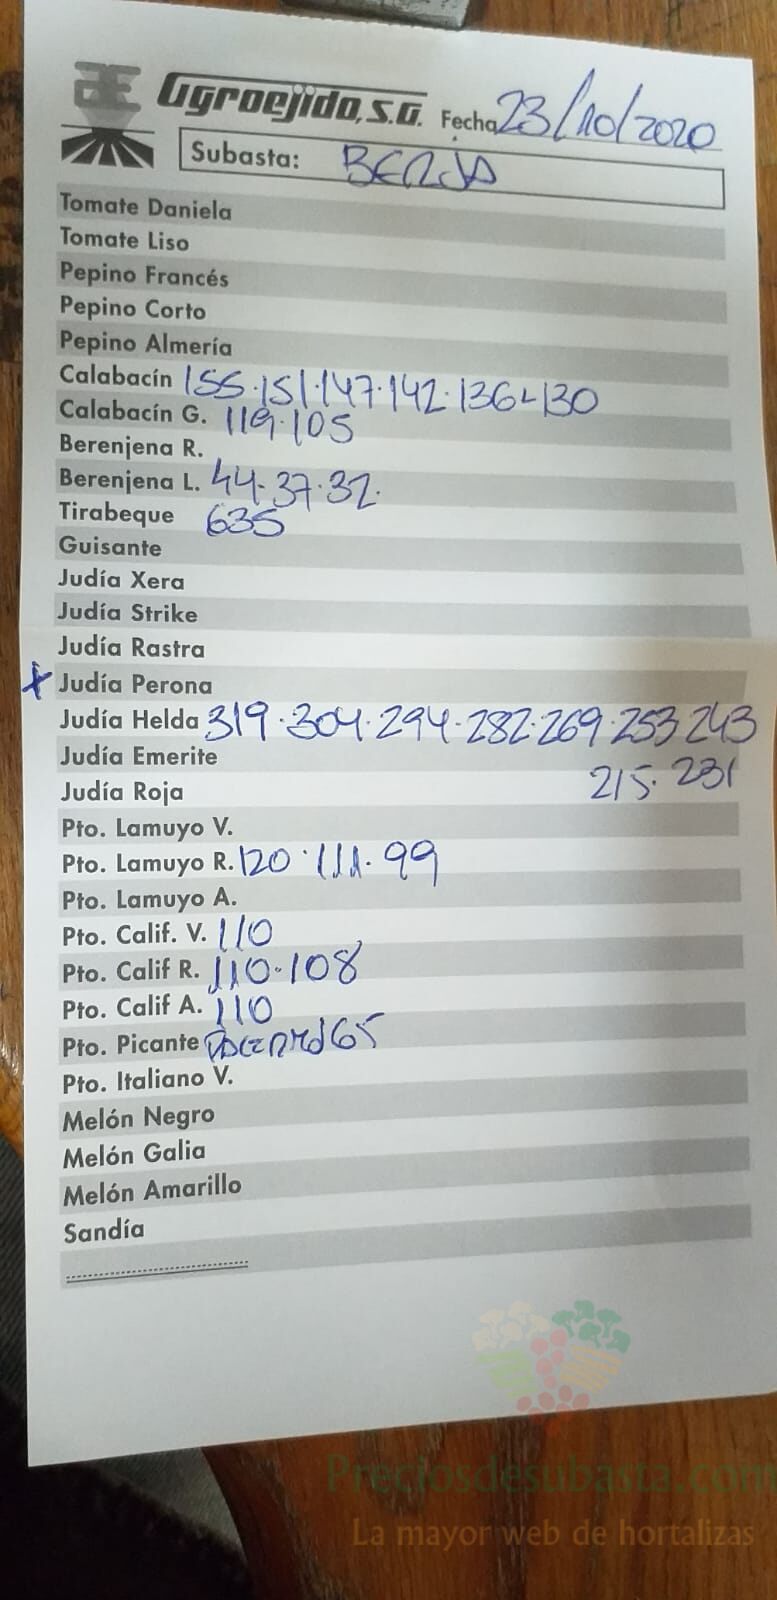 Agroejido, S.A. Fecha 23/10/2020
Subasta: BERJA
Tomate Daniela
Tomate Liso
Pepino Francés
Pepino Corto
Pepino Almería
Calabacín 155·151·147·142·136-130
Calabacín G. 119·105
Berenjena R.
Berenjena L. 44·37·32·
Tirabeque 635
Guisante
Judía Xera
Judía Strike
Judía Rastra
x Judía Perona
Judía Helda 319·304·294·282·269·253 243
Judía Emerite
215·231
Judía Roja
Pto. Lamuyo V.
Pto. Lamuyo R. 120·111·99
Pto. Lamuyo A.
Pto. Calif. V. 110
Pto. Calif R. 110·108
Pto. Calif A. 110
Pto. Picante 65
Pto. Italiano V.
Melón Negro
Melón Galia
Melón Amarillo
Sandía
Preciosdesubasta.com
La mayor web de hortalizas